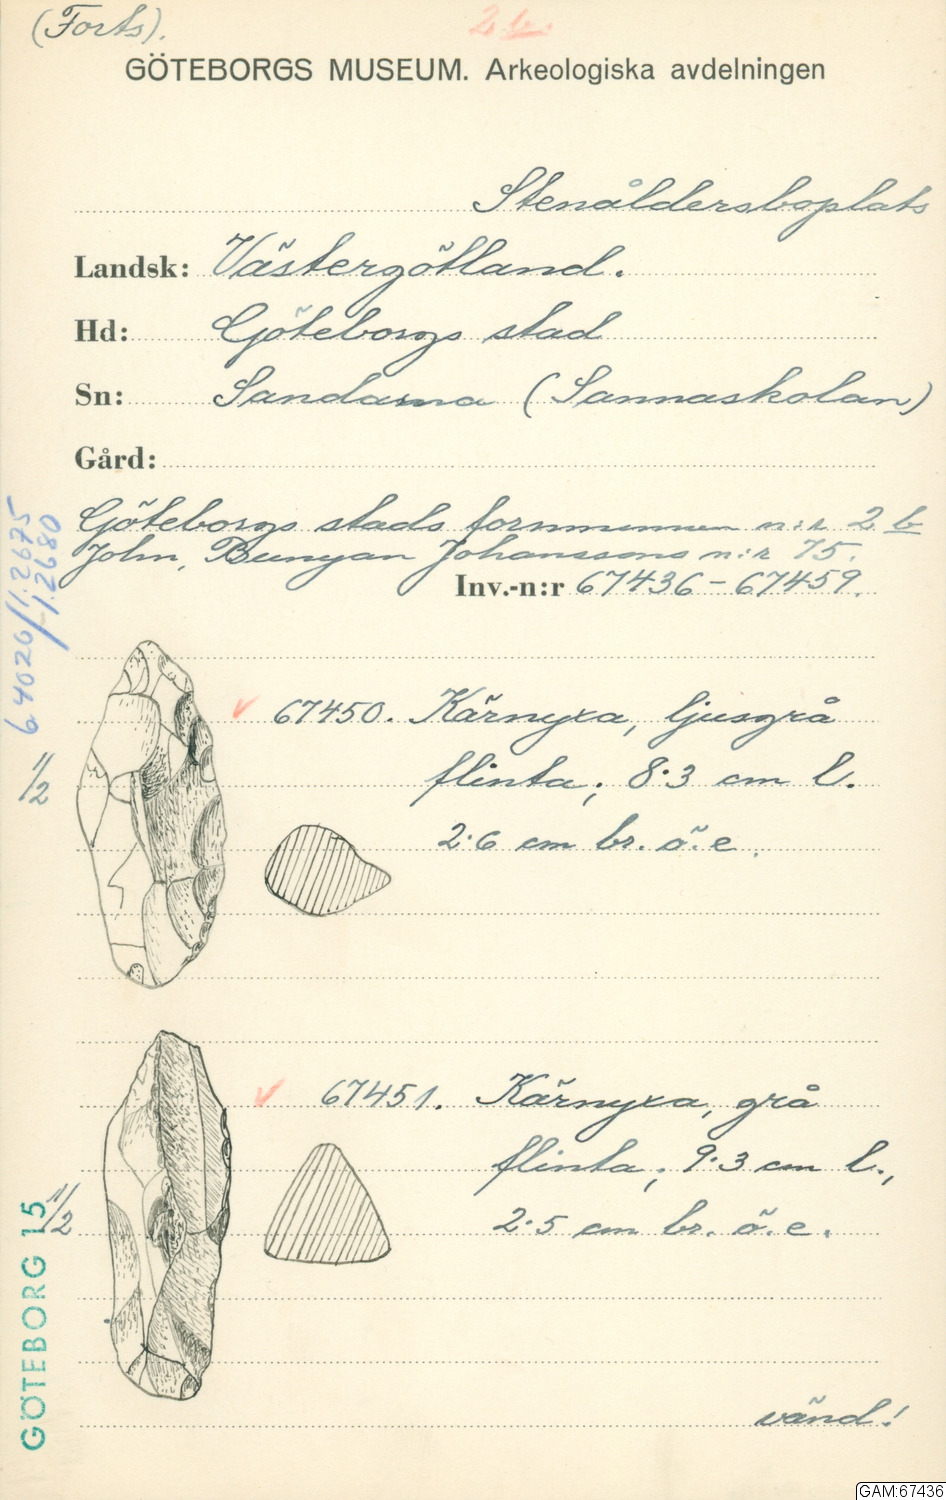 (Forts).
2 b.
GÖTEBORGS MUSEUM. Arkeologiska avdelningen
Stenåldersboplats
Landsk: Västergötland.
Hd: Göteborgs stad
Sn: Sandarna (Sannaskolan)
Gård:
Göteborgs stads fornminnen n:r 2 b
John, Bunyan Johanssons n:r 75.
Inv.-n:r 67436-67459.
64020/1:2675
/1:2680
1/2
67450. Kärnyxa, ljusgrå
flinta; 8.3 cm l.
2.6 cm br. ö. e.
1/2
67451. Kärnyxa, grå
flinta; 9.3 cm l.,
2.5 cm br. ö. e.
GÖTEBORG 15
vänd!
GAM:67436